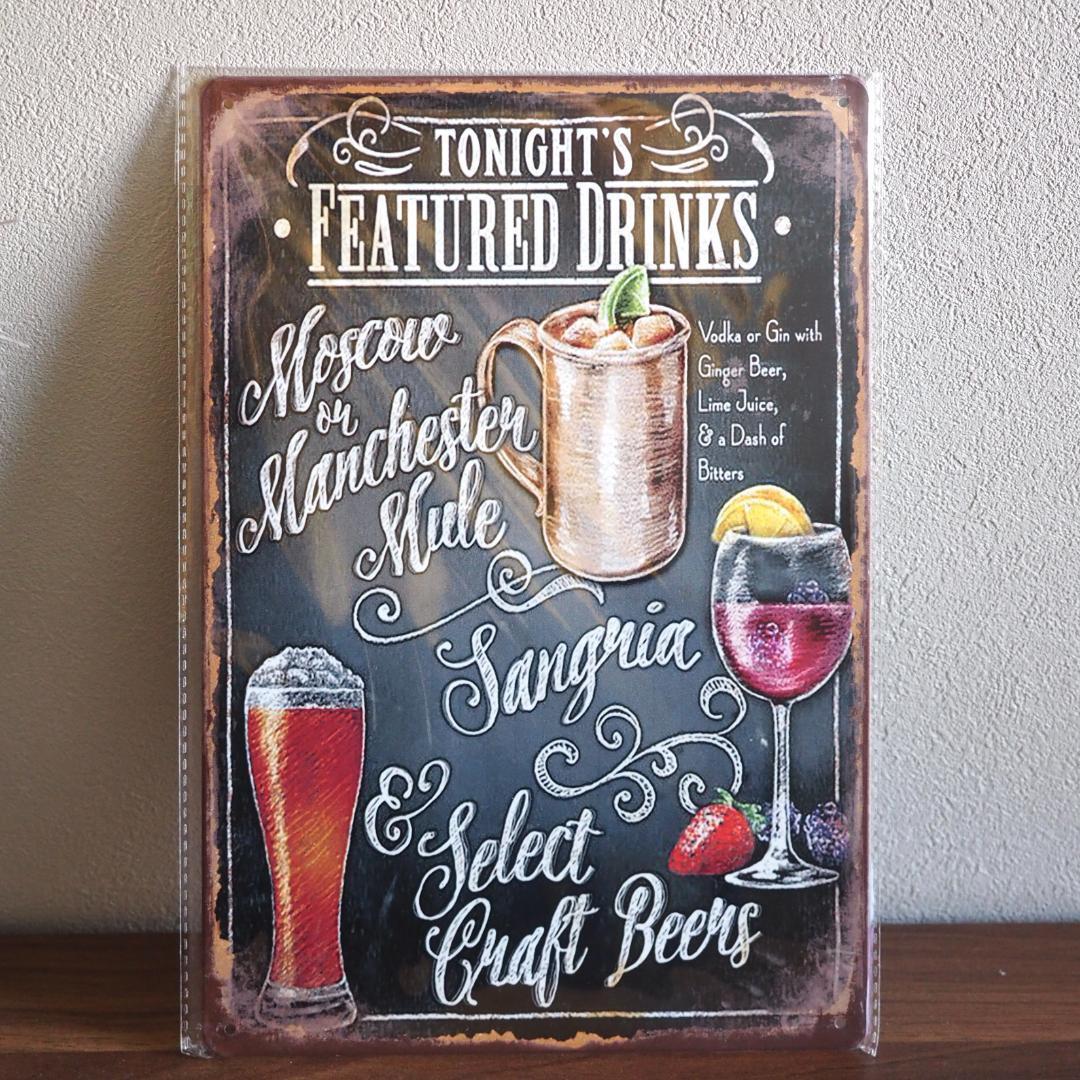 TONIGHT'S
FEATURED DRINKS
Moscow
or
Manchester
Mule
Vodka or Gin with
Ginger Beer,
Lime Juice,
& a Dash of
Bitters
Sangria
& Select
Craft Beers